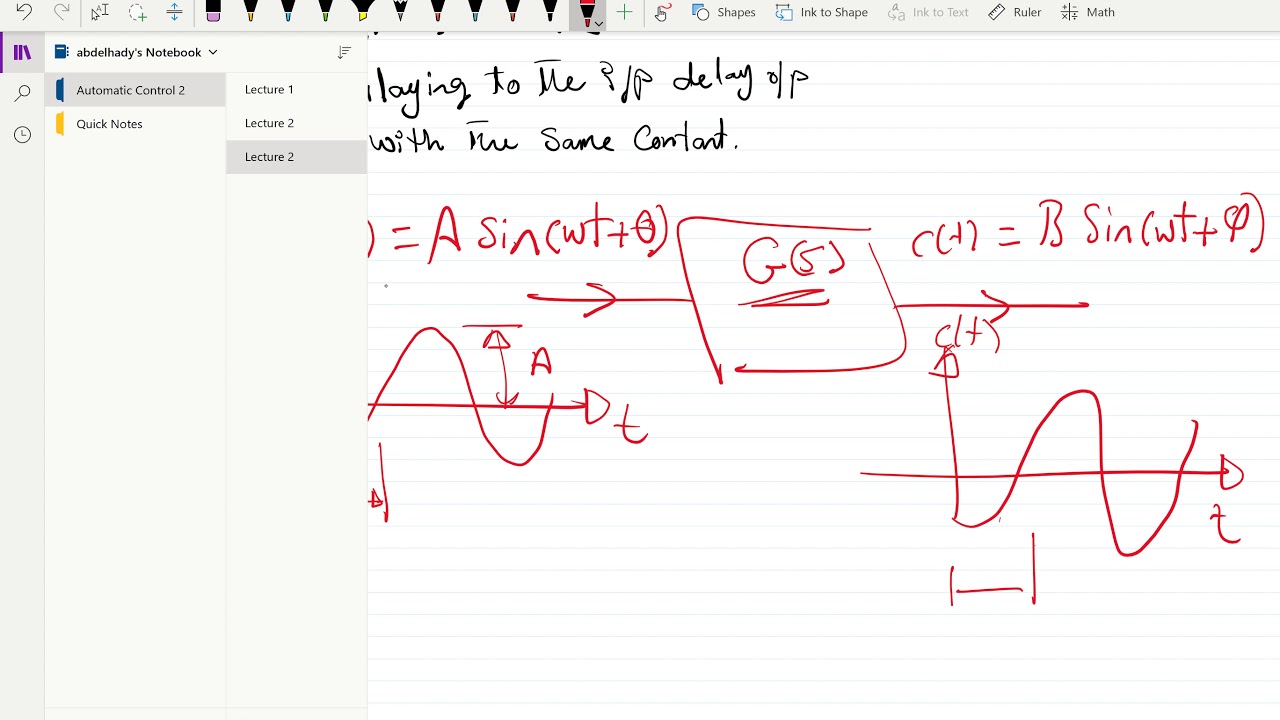 Shapes Ink to Shape Ink to Text Ruler Math
abdelhady's Notebook
Automatic Control 2
Quick Notes
Lecture 1
Lecture 2
Lecture 2
laying to the i/p delay o/p
with the Same Contant.
) = A Sin(wt+θ)
G(s)
c(t) = B Sin(wt+φ)
c(t)
A
t
t